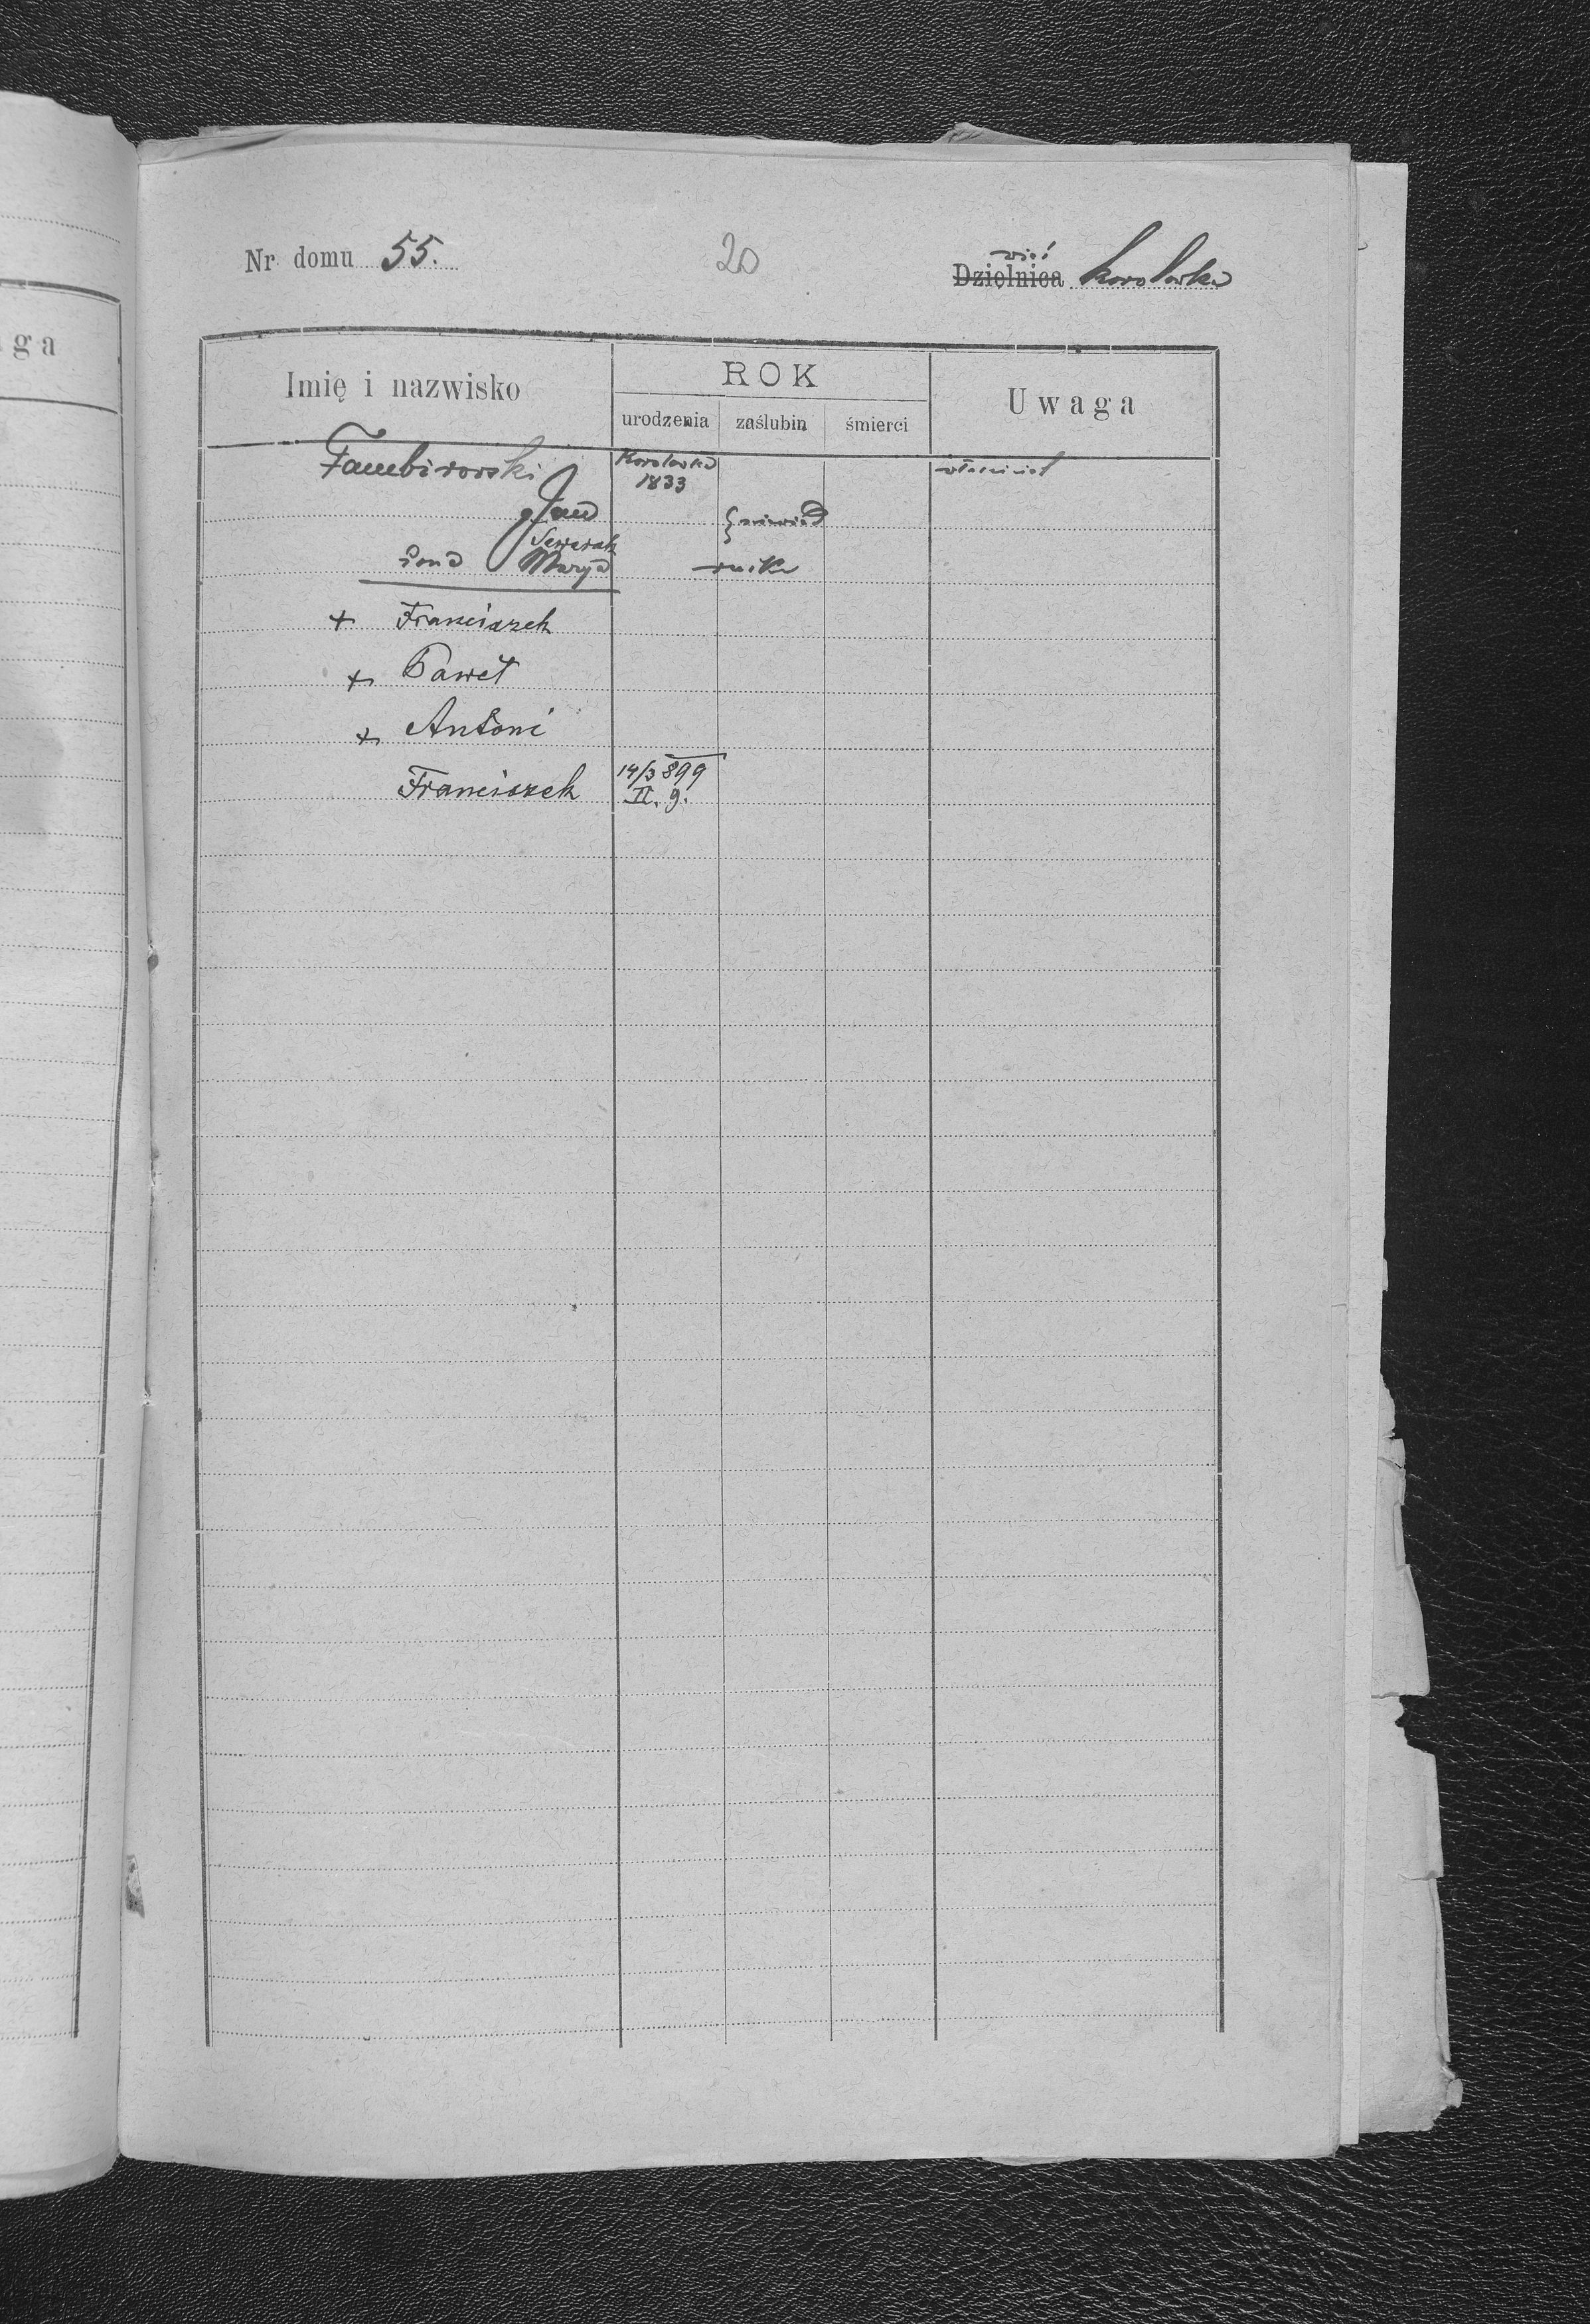 ga
Nr domu 55. 20 wieś
Dzielnica Korolówka
Imię i nazwisko ROK Uwaga
urodzenia zaślubin śmierci
Korolówka właściciel
1833
Jan
żona Marya
+ Franciszek
+ Paweł
+ Antoni
Franciszek 14/3 899
II. 9.